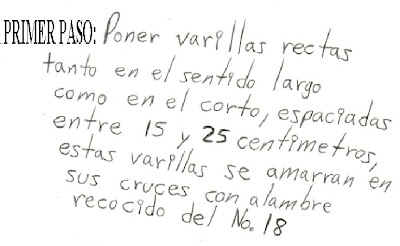 PRIMER PASO: Poner varillas rectas
tanto en el sentido largo
como en el corto, espaciadas
entre 15 y 25 centímetros,
estas varillas se amarran en
sus cruces con alambre
recocido del No. 18